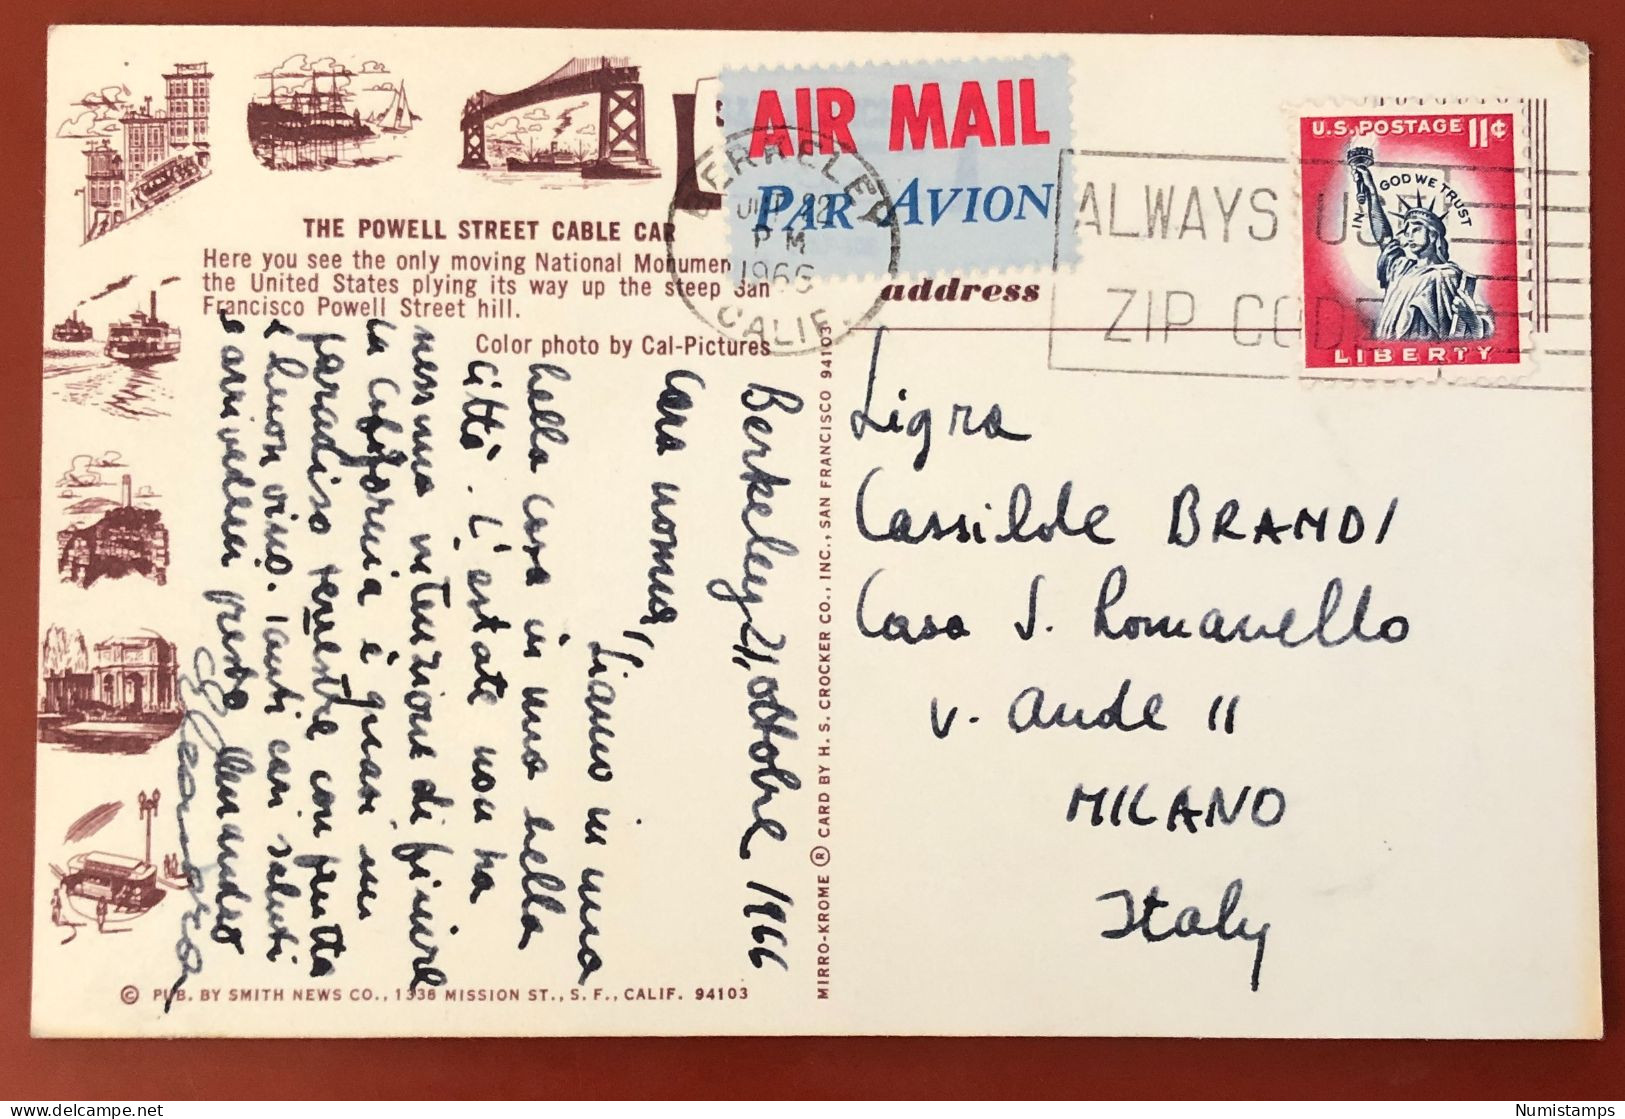 THE POWELL STREET CABLE CAR
Here you see the only moving National Monumen
the United States plying its way up the steep San
Francisco Powell Street hill.
Color photo by Cal-Pictures
AIR MAIL
PAR AVION
BERKELEY
22
PM
1966
CALIF.
ALWAYS US
ZIP CODE
U.S. POSTAGE 11¢
IN GOD WE TRUST
LIBERTY
address
Berkeley 21, ottobre 1966
Cara nonna,
Siamo in una
bella casa in una bella
città. L'estate non ha
nessuna intenzione di finire
la California è quasi un
paradiso terrestre con frutta
e buon vino. Tanti cari saluti
e arrivederci presto
MIRRO-KROME ® CARD BY H. S. CROCKER CO., INC., SAN FRANCISCO 94103
Sig.ra
Cassilde BRANDI
Casa S. Romanello
v. Aude 11
MILANO
Italy
© PUB. BY SMITH NEWS CO., 1336 MISSION ST., S. F., CALIF. 94103
Numistamps